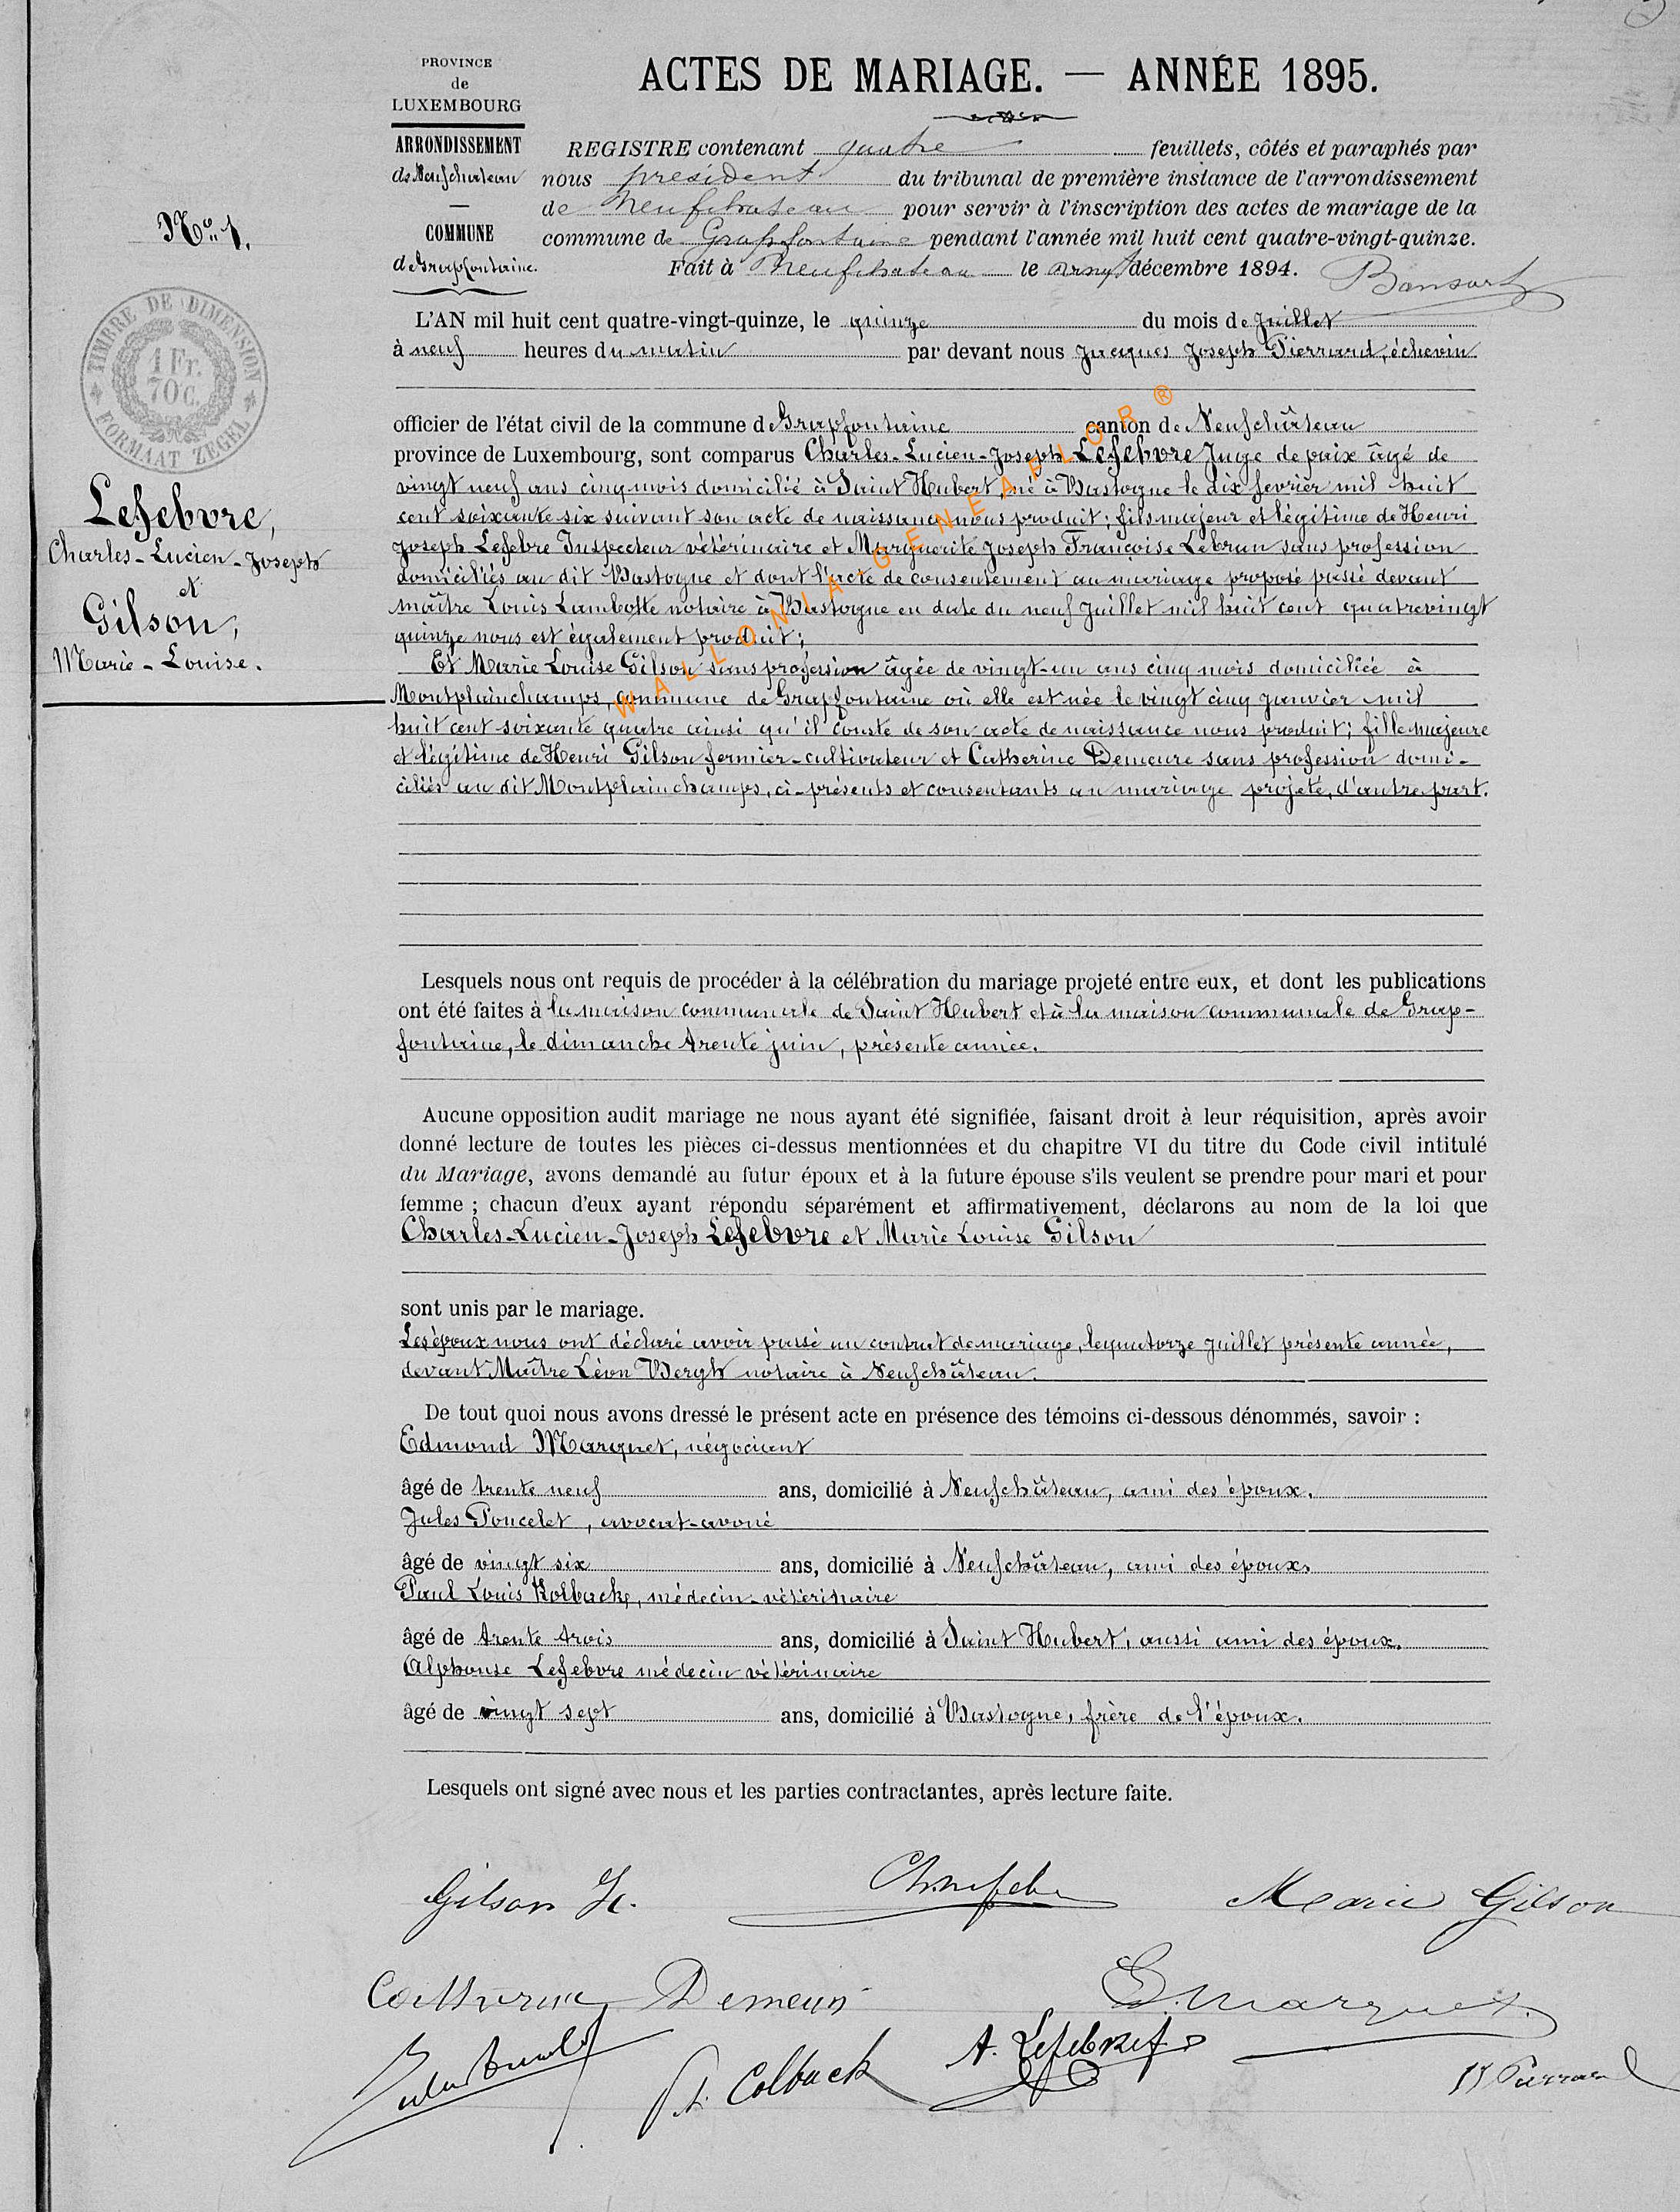 PROVINCE
de
LUXEMBOURG
ARRONDISSEMENT
de Neufchateau
COMMUNE
de Grapfontaine.
ACTES DE MARIAGE. — ANNÉE 1895.
REGISTRE contenant quatre feuillets, côtés et paraphés par
nous président du tribunal de première instance de l'arrondissement
de Neufchateau pour servir à l'inscription des actes de mariage de la
commune de Grapfontaine pendant l'année mil huit cent quatre-vingt-quinze.
Fait à Neufchateau le décembre 1894.
Bansart
No. 1.
TIMBRE DE DIMENSION
1 Fr.
70 C.
FORMAAT ZEGEL
Lefebvre,
Charles-Lucien-Joseph
et
Gilson,
Marie-Louise.
L'AN mil huit cent quatre-vingt-quinze, le quinze du mois de Juillet
à neuf heures du matin par devant nous Jacques Joseph Pierrard, échevin
officier de l'état civil de la commune de Grapfontaine canton de Neufchâteau
province de Luxembourg, sont comparus Charles-Lucien-Joseph Lefebvre Juge de paix âgé de
vingt neuf ans cinq mois domicilié à Saint Hubert, né à Bastogne le dix fevrier mil huit
cent soixante six suivant son acte de naissance nous produit; fils majeur et légitime de Henri
Joseph Lefebre Inspecteur vétérinaire et Marguerite Joseph Françoise Lebrun sans profession
domiciliés au dit Bastogne et dont l'acte de consentement au mariage proposé passé devant
maître Louis Lambotte notaire à Bastogne en date du neuf Juillet mil huit cent quatrevingt
quinze nous est également produit;
Et Marie Louise Gilson sans profession âgée de vingt-un ans cinq mois domiciliée à
Montplainchamps, commune de Grapfontaine où elle est née le vingt cinq janvier mil
huit cent soixante quatre ainsi qu'il conste de son acte de naissance nous produit; fille majeure
et légitime de Henri Gilson fermier-cultivateur et Catherine Demeure sans profession domi-
ciliés au dit Montplainchamps, ci-présents et consentants au mariage projeté, d'autre part.
WALLONIA-GENEAFLOR ®
Lesquels nous ont requis de procéder à la célébration du mariage projeté entre eux, et dont les publications
ont été faites à la maison communale de Saint Hubert et à la maison communale de Grap-
fontaine, le dimanche trente juin, présente année.
Aucune opposition audit mariage ne nous ayant été signifiée, faisant droit à leur réquisition, après avoir
donné lecture de toutes les pièces ci-dessus mentionnées et du chapitre VI du titre du Code civil intitulé
du Mariage, avons demandé au futur époux et à la future épouse s'ils veulent se prendre pour mari et pour
femme ; chacun d'eux ayant répondu séparément et affirmativement, déclarons au nom de la loi que
Charles-Lucien-Joseph Lefebvre et Marie Louise Gilson
sont unis par le mariage.
Les époux nous ont déclaré avoir passé un contrat de mariage, le quatorze Juillet présente année,
devant Maître Léon Bergh notaire à Neufchâteau.
De tout quoi nous avons dressé le présent acte en présence des témoins ci-dessous dénommés, savoir :
Edmond Marquet, négociant
âgé de trente neuf ans, domicilié à Neufchâteau, ami des époux.
Jules Poncelet, avocat-avoué
âgé de vingt six ans, domicilié à Neufchâteau, ami des époux.
Paul Louis Kolback, médecin-vétérinaire
âgé de trente trois ans, domicilié à Saint Hubert, aussi ami des époux.
Alphonse Lefebvre médecin vétérinaire
âgé de vingt sept ans, domicilié à Bastogne, frère de l'époux.
Lesquels ont signé avec nous et les parties contractantes, après lecture faite.
Gilson H. Marie Gilson
Catherine Demeur E. Marquet
A. Lefebvre
Colback Pierrard